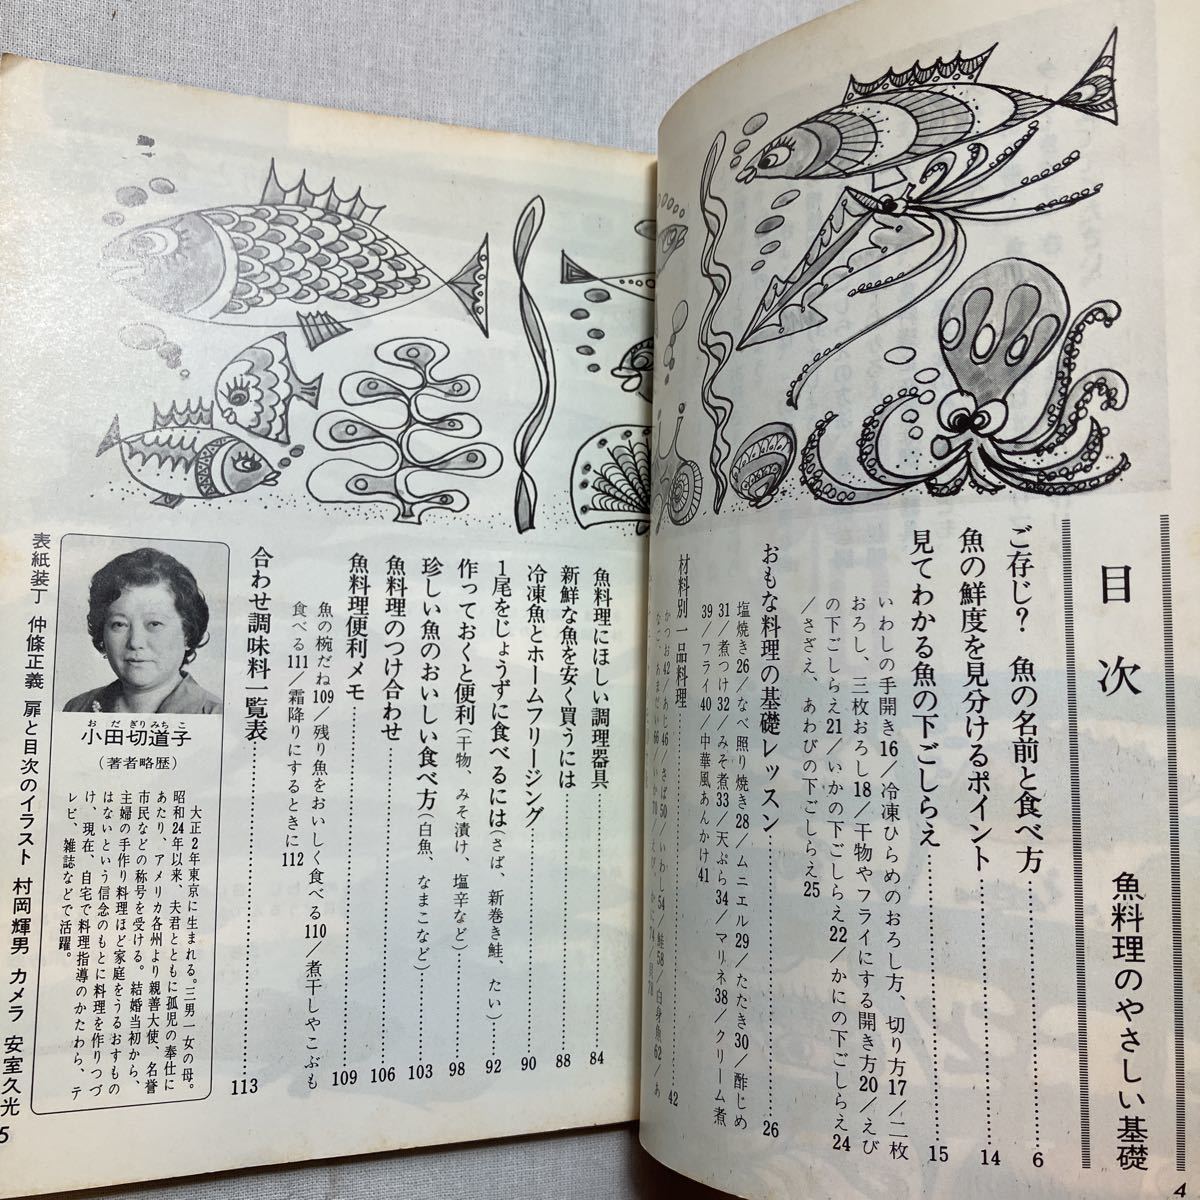 目次
魚料理のやさしい基礎
ご存じ? 魚の名前と食べ方……6
魚の鮮度を見分けるポイント……14
見てわかる魚の下ごしらえ……15
いわしの手開き16/冷凍ひらめのおろし方、切り方17/二枚
おろし、三枚おろし18/干物やフライにする開き方20/えび
の下ごしらえ21/いかの下ごしらえ22/かにの下ごしらえ24
/さざえ、あわびの下ごしらえ25
おもな料理の基礎レッスン……26
塩焼き26/なべ照り焼き28/ムニエル29/たたき30/酢じめ
31/煮つけ32/みそ煮33/天ぷら34/マリネ38/クリーム煮
39/フライ40/中華風あんかけ41
材料別一品料理……42
かつお42/あじ46/さば50/いわし54/鮭58/白身魚62/あ
なご、あまだい66/いか70/えび、かに74/貝78
4
魚料理にほしい調理器具……84
新鮮な魚を安く買うには……88
冷凍魚とホームフリージング……90
1尾をじょうずに食べるには(さば、新巻き鮭、たい)……92
作っておくと便利(干物、みそ漬け、塩辛など)……98
珍しい魚のおいしい食べ方(白魚、なまこなど)……103
魚料理のつけ合わせ……106
魚料理便利メモ……109
魚の椀だね109/残り魚をおいしく食べる110/煮干しやこぶも
食べる111/霜降りにするときに112
合わせ調味料一覧表……113
おだぎりみちこ
小田切道子
(著者略歴)
大正2年東京に生まれる。三男一女の母。
昭和24年以来、夫君とともに孤児の奉仕に
あたり、アメリカ各州より親善大使、名誉
市民などの称号を受ける。結婚当初から、
主婦の手作り料理ほど家庭をうるおすもの
はないという信念のもとに料理を作りつづ
け、現在、自宅で料理指導のかたわら、テ
レビ、雑誌などで活躍。
表紙装丁 仲條正義 扉と目次のイラスト 村岡輝男 カメラ 安室久光
5